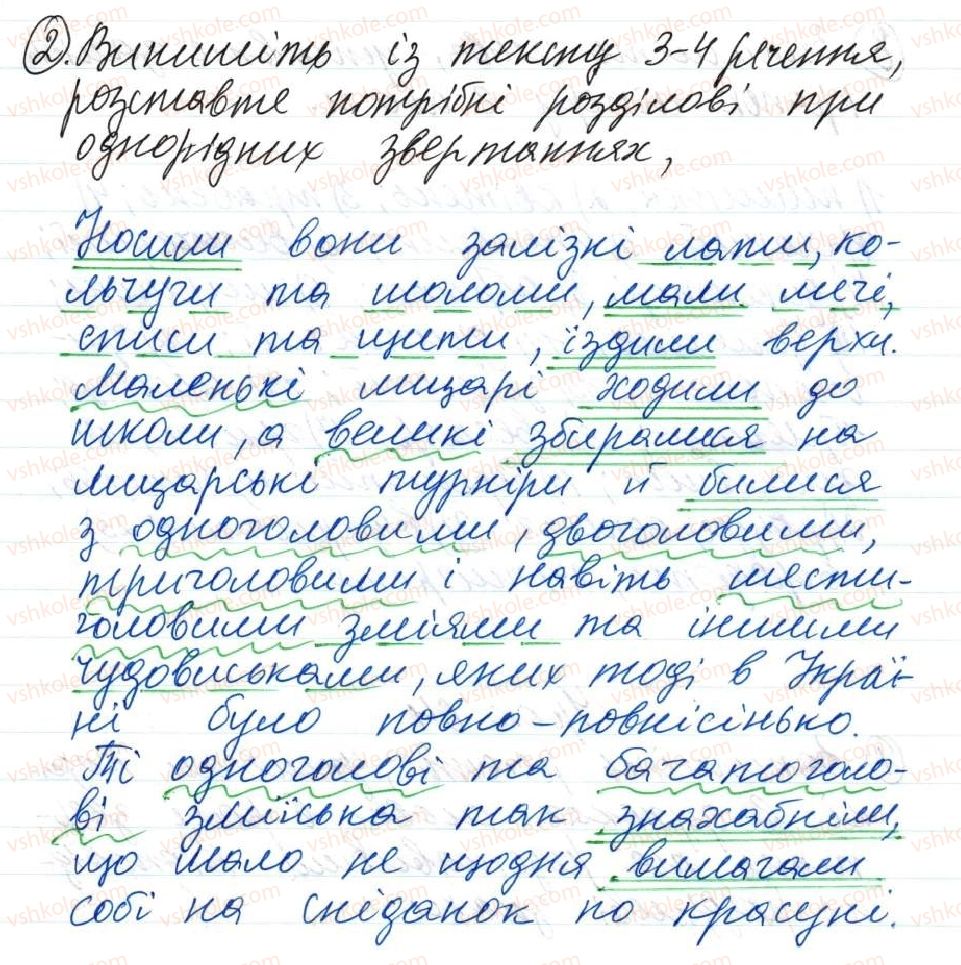 2. Випишіть із тексту 3-4 речення,
розставте потрібні розділові при
однорідних звертаннях,
Носили вони залізкі лати, ко-
льчуги та шоломи, мали мечі,
списи та щити, їздили верхи.
Маленькі лицарі ходили до
школи, а великі збиралися на
лицарські турніри й билися
з одноголовими, двоголовими,
триголовими і навіть шести-
головими зміями та іншими
чудовиськами, яких тоді в Украї-
ні було повно-повнісінько.
Ті одноголові та багатоголо-
ві зміїська так знахабніли,
що мало не щодня вимагали
собі на сніданок по красуні.
vshkole.com